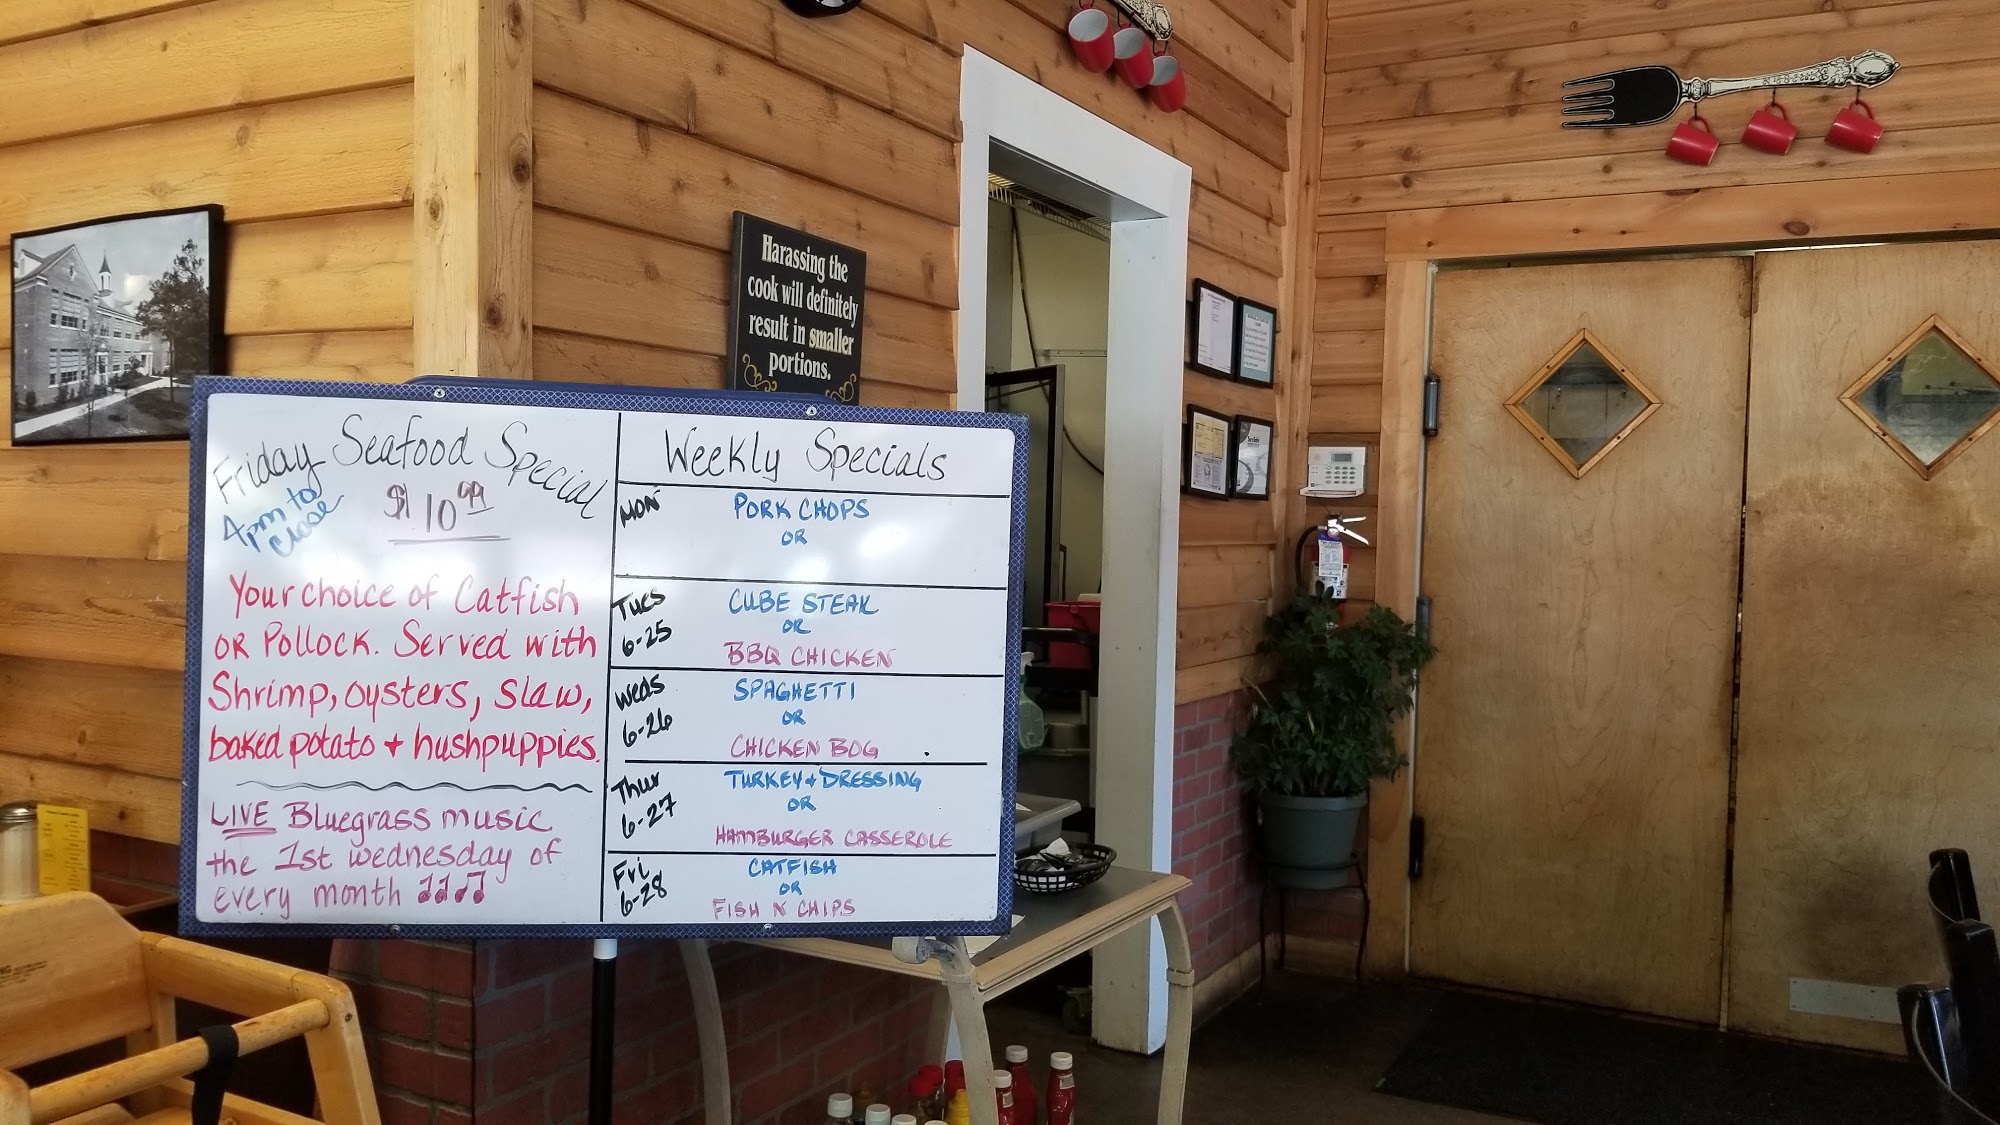 Harassing the
cook will definitely
result in smaller
portions.
Friday Seafood Special
4pm to
close
$10.99
Your choice of Catfish
or Pollock. Served with
Shrimp, oysters, slaw,
baked potato + hushpuppies.
LIVE Bluegrass music
the 1st wednesday of
every month
Weekly Specials
MON
PORK CHOPS
OR
Tues
6-25
CUBE STEAK
OR
BBQ CHICKEN
Weds
6-26
SPAGHETTI
OR
CHICKEN BOG
Thur
6-27
TURKEY + DRESSING
OR
HAMBURGER CASSEROLE
Fri
6-28
CATFISH
OR
FISH N CHIPS